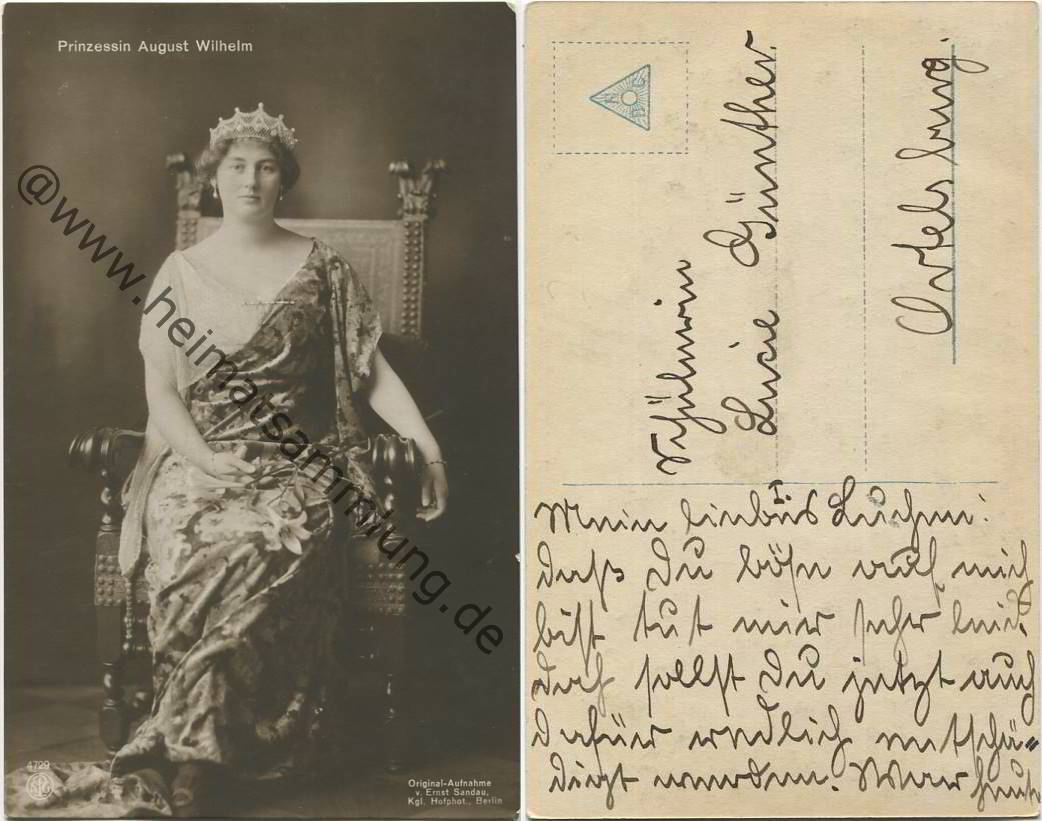 Prinzessin August Wilhelm
@www.heimatsammlung.de
4729
Original-Aufnahme
v. Ernst Sandau,
Kgl. Hofphot., Berlin
Fräulein
Lucie Günther
Ortelsburg.
I.
Mein liebes Luchen!
daß Du böse auf mich
bist tut mir sehr leid.
doch sollst Du jetzt auch
dafür endlich entschä=
digt werden. War heute